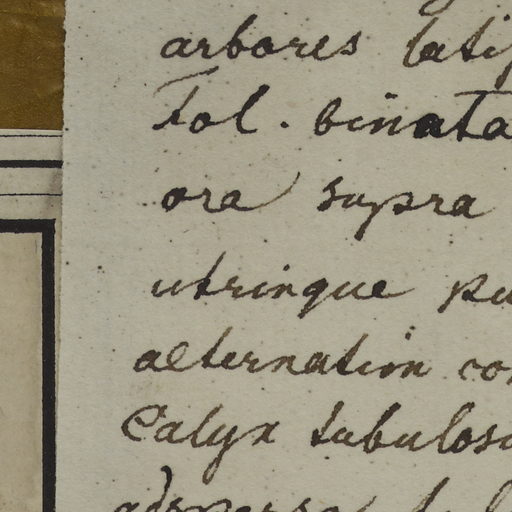 arbores lati
fol. binata
ora supra
utrinque pu
alternatim co
Calyx tubulos
adspersa